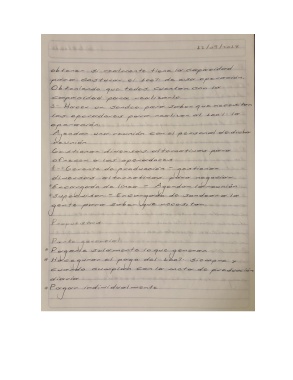 obtener si realmente tiene la capacidad
para gestionar el 100% de esa operación
Obteniendo que todos cuentan con la
capacidad para realizarlo
2- Hacer un sondeo para saber que necesitan
los operadores para realizar al 100% la
operación
Agendar una reunión con el personal
decisión
Gestionar diversas alternativas para
ofrecer a los operadores
3- Gerente de producción = gestionar
diversas alternativas para negociar
Encargado de línea = Agendar la reunión
Supervisor = Encargado de sondear a la
gente para saber que necesitan
Parte salarial
Pagarle solamente lo que generan
el pago del 100% siempre y
cuando cumplan con la meta de producción
diaria
Pagar individualmente